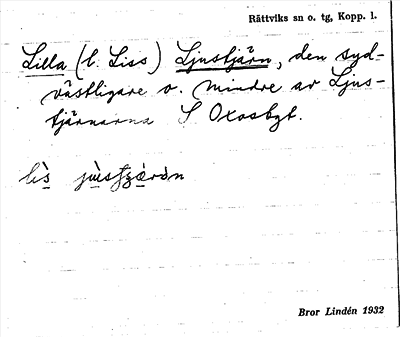 Rättviks sn o. tg, Kopp. l.
Lilla (l. Liss) Ljustjärn, den syd-
västligare o. mindre av Ljus-
tjärnarna S Oxosbgt.
lìs jùsʃʒæ̀rən
Bror Lindén 1932